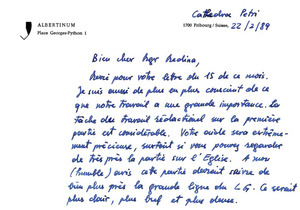 ALBERTINUM
Place Georges-Python 1
Cathedra Petri
1700 Fribourg / Suisse, 22/2/89
Bien cher Mgr Medina,
Merci pour votre lettre du 15 de ce mois.
Je suis aussi de plus en plus conscient de ce
que notre travail a une grande importance. La
tâche du travail rédactionnel sur la première
partie est considérable. Votre aide sera extrême-
ment précieuse, surtout si vous pouvez regarder
de très près la partie sur l'Eglise. A mon
(humble) avis cette partie devrait suivre de
bien plus près la grande ligne du LG. Ce serait
plus clair, plus bref et plus dense.